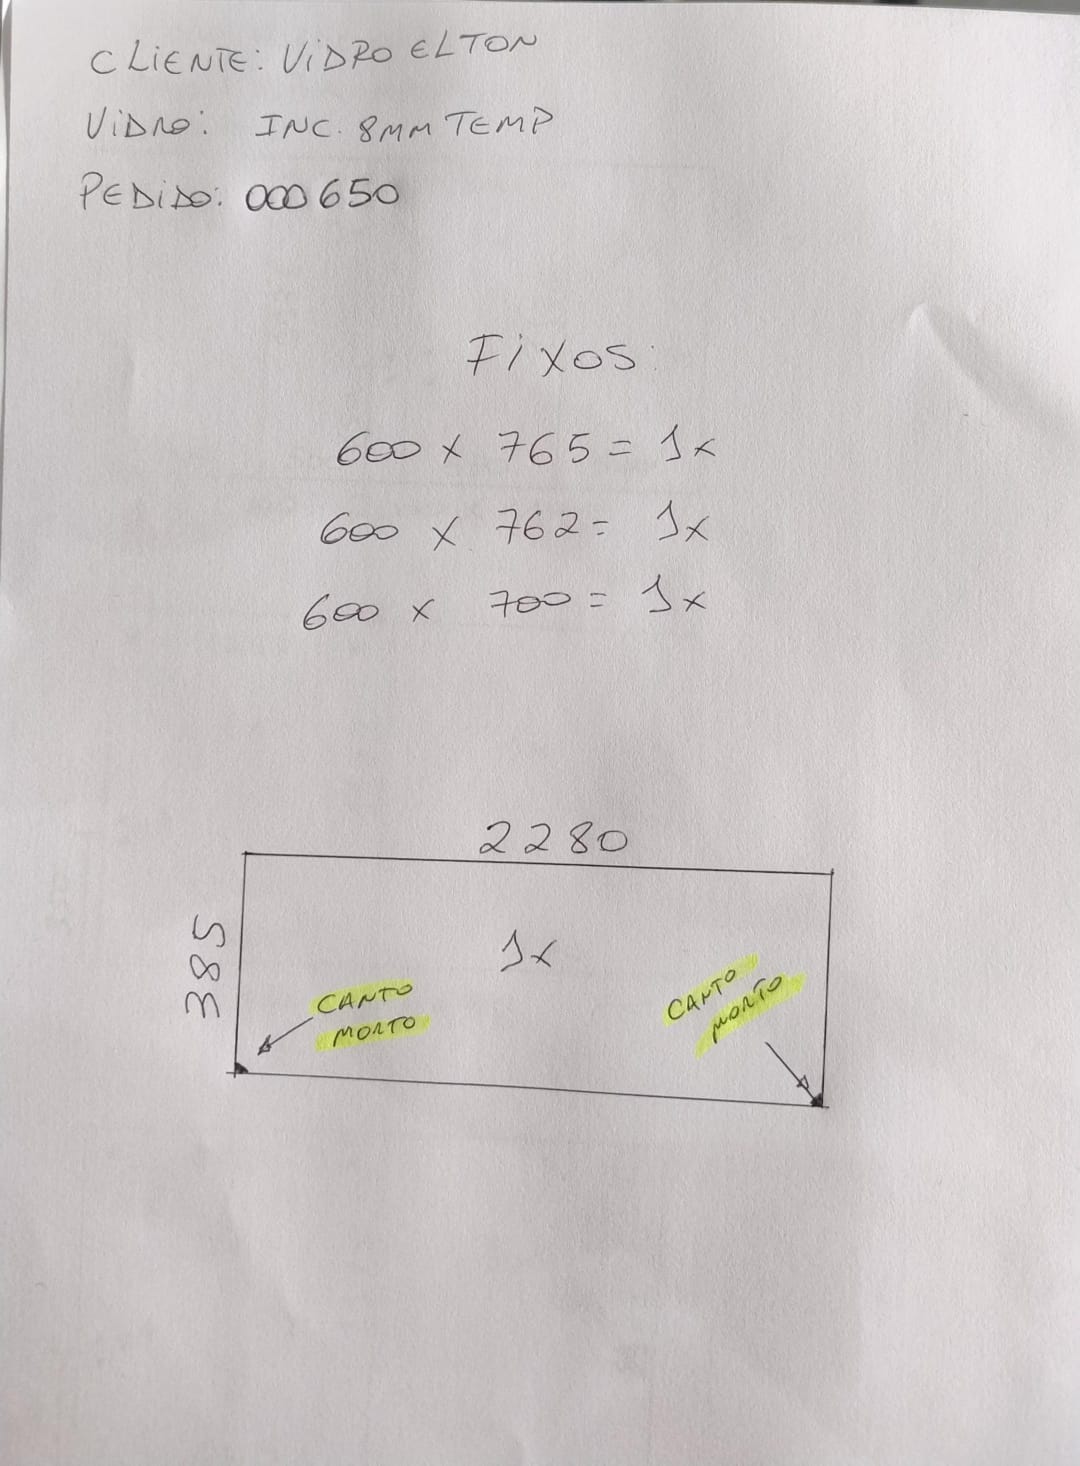 CLIENTE: VIDRO ELTON
VIDRO: INC. 8MM TEMP
PEDIDO: 000650
FIXOS:
600 x 765 = 1x
600 x 762 = 1x
600 x 700 = 1x
2280
385
1x
CANTO
MORTO
CANTO
MORTO